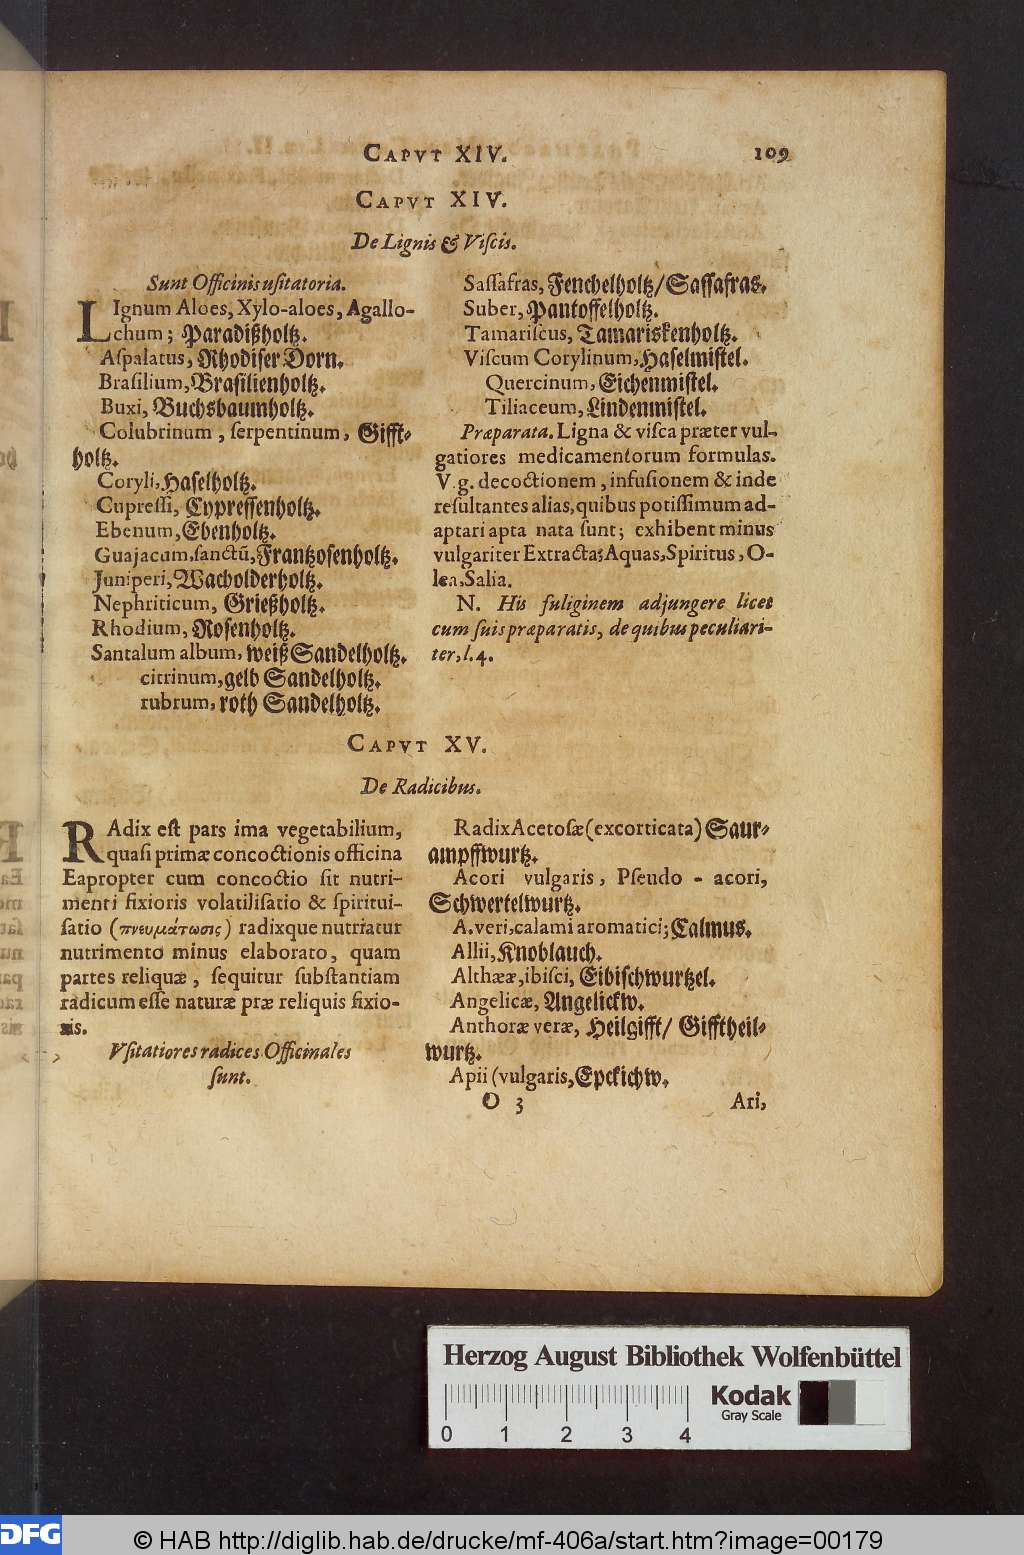 CAPVT XIV. 109
CAPVT XIV.
De Lignis & Viſcis.
Sunt Officinis uſitatoria.
LIgnum Aloes, Xylo-aloes, Agallo-
chum; Paradißholtz.
Aſpalatus, Rhodiſer Dorn.
Braſilium, Braſilienholtz.
Buxi, Buchsbaumholtz.
Colubrinum, ſerpentinum, Gifft-
holtz.
Coryli, Haſelholtz.
Cupreſſi, Cypreſſenholtz.
Ebenum, Ebenholtz.
Guajacum, ſanctũ, Frantzoſenholtz.
Juniperi, Wacholderholtz.
Nephriticum, Grießholtz.
Rhodium, Roſenholtz.
Santalum album, weiß Sandelholtz.
citrinum, gelb Sandelholtz.
rubrum, roth Sandelholtz.
Saſſafras, Fenchelholtz/ Saſſafras.
Suber, Pantoffelholtz.
Tamariſcus, Tamariskenholtz.
Viſcum Corylinum, Haſelmiſtel.
Quercinum, Eichenmiſtel.
Tiliaceum, Lindenmiſtel.
Præparata. Ligna & viſca præter vul-
gatiores medicamentorum formulas.
V.g. decoctionem, infuſionem & inde
reſultantes alias, quibus potiſſimum ad-
aptari apta nata ſunt; exhibent minus
vulgariter Extracta; Aquas, Spiritus, O-
lea, Salia.
N. His fuliginem adjungere licet
cum ſuis præparatis, de quibus peculiari-
ter, l. 4.
CAPVT XV.
De Radicibus.
RAdix eſt pars ima vegetabilium,
quaſi primæ concoctionis officina
Eapropter cum concoctio ſit nutri-
menti fixioris volatiliſatio & ſpiritui-
ſatio (πνευμάτωσις) radixque nutriatur
nutrimento minus elaborato, quam
partes reliquæ, ſequitur ſubſtantiam
radicum eſſe naturæ præ reliquis fixio-
ris.
Vſitatiores radices Officinales
ſunt.
Radix Acetoſæ (excorticata) Saur-
ampffwurtz.
Acori vulgaris, Pſeudo-acori,
Schwertelwurtz.
A. veri, calami aromatici; Calmus.
Allii, Knoblauch.
Althææ, ibiſci, Eibiſchwurtzel.
Angelicæ, Angelickw.
Anthoræ veræ, Heilgifft/ Giftheil-
wurtz.
Apii (vulgaris, Epckichw.
O 3 Ari,
Herzog August Bibliothek Wolfenbüttel
0 1 2 3 4
Kodak
Gray Scale
DFG
© HAB http://diglib.hab.de/drucke/mf-406a/start.htm?image=00179